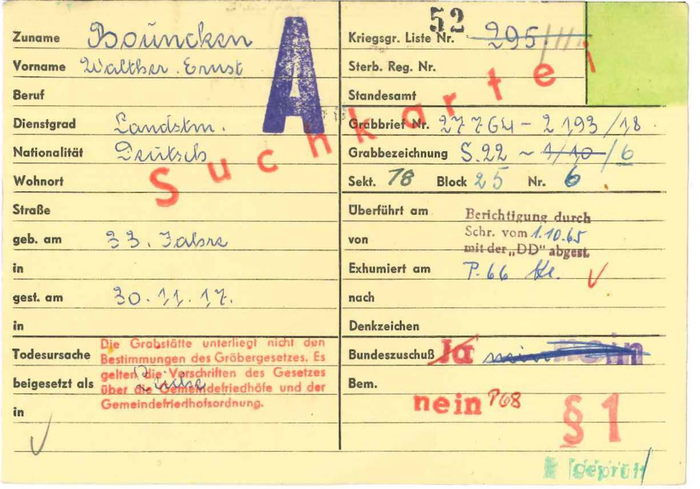 52
Zuname Bouncken
Vorname Walther Ernst
Beruf
Dienstgrad Landstm.
Nationalität Deutsch
Wohnort
Straße
geb. am 33. Jahre
in
gest. am 30.11.17.
in
Todesursache
Die Grabstätte unterliegt nicht den
Bestimmungen des Gräbergesetzes. Es
gelten die Vorschriften des Gesetzes
über die Gemeindefriedhöfe und der
Gemeindefriedhofsordnung.
beigesetzt als Leiche
in
A
Suchkartei
Kriegsgr. Liste Nr. 295
Sterb. Reg. Nr.
Standesamt
Grabbrief Nr. 27764-2193/18
Grabbezeichnung S.22 ~ 1/10/6
Sekt. 18 Block 25 Nr. 6
Überführt am
von
Berichtigung durch
Schr. vom 1.10.65
mit der „DD" abgest.
Exhumiert am P.66
nach
Denkzeichen
Bundeszuschuß Ja nein nein
Bem.
nein P68
§ 1
geprüft